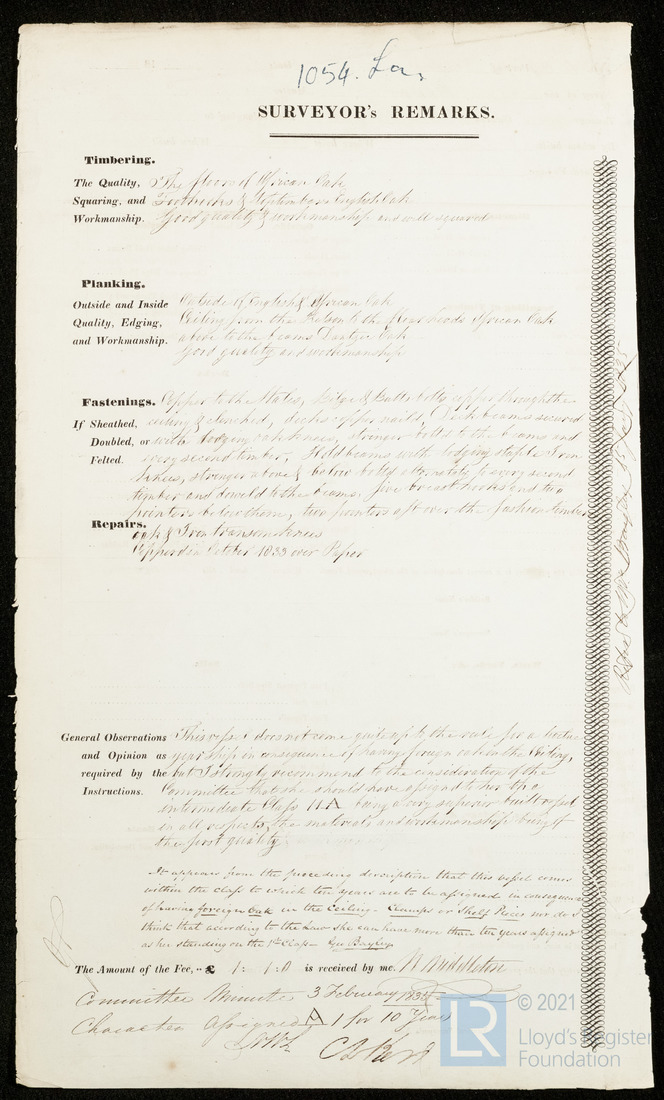 1054. Lon
SURVEYOR's REMARKS.
Timbering.
The Quality, The floors of African Oak
Squaring, and Foothooks & Toptimbers English Oak
Workmanship. Good quality & workmanship and well squared
Planking.
Outside and Inside Outside of English & African Oak
Quality, Edging, Ceiling from the Kelson to the African Oak
and Workmanship. above to the beams Dantzic Oak
Good quality and workmanship
Fastenings. Copper to the Wales, Bilge & Buttbolts copper through the
If Sheathed, ceiling & clenched, decks copper nails, Deck beams secured
Doubled, or with lodging oak knees, stringer bolted to the beams and
Felted. every second timber. Hold beams with lodging staple Iron
knees, stringer above & below bolted alternately to every second
timber and doweld to the beams. five breast hooks and two
pointers below them, two pointers aft over the fashion timbers
Repairs.
oak & Iron transom knees
Copperd in October 1833 over Paper
General Observations This vessel does not come quite up to the rule for a twelve
and Opinion as years ship in consequence of having foreign oak in the Ceiling,
required by the but I strongly recommend to the consideration of the
Instructions. Committee that she should have assigned to her the
intermediate Class 11 A being a very superior built vessel
in all respects, the materials and workmanship being of
the first quality
It appears from the preceding description that this vessel comes
within the class to which ten years are to be assigned in consequence
of having foreign Oak in the Ceiling - Clamps or Shelf Pieces nor do I
think that according to the Law she can have more than ten years assigned
as her standing on the 1st Class - Geo Bayley
The Amount of the Fee, - £ 1: 1: 0 is received by me. N Middleton
Committee Minute 3 February 1835
Character assigned A 1 for 10 Years
© 2021
LR Lloyd's Register
Foundation